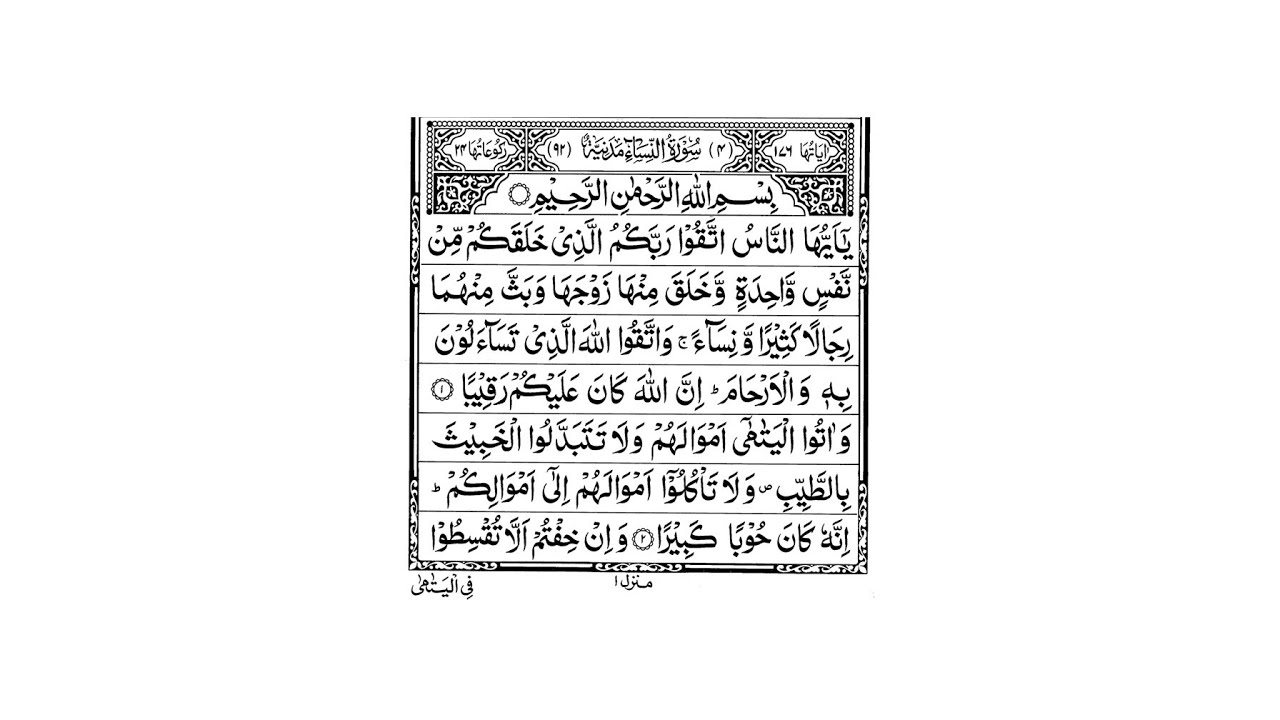 اٰیَاتُهَا ۱۷۶ (۴) سُوْرَةُ النِّسَآءِ مَدَنِيَّةٌ (۹۲) رُكُوْعَاتُهَا ۲۴
بِسْمِ اللّٰهِ الرَّحْمٰنِ الرَّحِيْمِ
يٰۤاَيُّهَا النَّاسُ اتَّقُوْا رَبَّكُمُ الَّذِيْ خَلَقَكُمْ مِّنْ
نَّفْسٍ وَّاحِدَةٍ وَّخَلَقَ مِنْهَا زَوْجَهَا وَبَثَّ مِنْهُمَا
رِجَالًا كَثِيْرًا وَّنِسَآءً ۚ وَاتَّقُوا اللّٰهَ الَّذِيْ تَسَآءَلُوْنَ
بِهٖ وَالْاَرْحَامَ ؕ اِنَّ اللّٰهَ كَانَ عَلَيْكُمْ رَقِيْبًا ۱
وَاٰتُوا الْيَتٰمٰۤى اَمْوَالَهُمْ وَلَا تَتَبَدَّلُوا الْخَبِيْثَ
بِالطَّيِّبِ ۪ وَلَا تَاْكُلُوْۤا اَمْوَالَهُمْ اِلٰۤى اَمْوَالِكُمْ ؕ
اِنَّهٗ كَانَ حُوْبًا كَبِيْرًا ۲ وَاِنْ خِفْتُمْ اَلَّا تُقْسِطُوْا
منزل ۱
فِي الْيَتٰمٰى